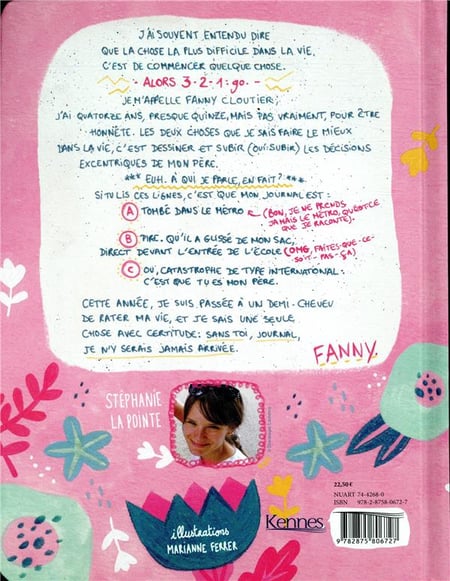 J'AI SOUVENT ENTENDU DIRE
QUE LA CHOSE LA PLUS DIFFICILE DANS LA VIE,
C'EST DE COMMENCER QUELQUE CHOSE.
- ALORS 3·2·1: go. -
JE M'APPELLE FANNY CLOUTIER;
J'AI QUATORZE ANS, PRESQUE QUINZE, MAIS PAS VRAIMENT, POUR ÊTRE
HONNÊTE. LES DEUX CHOSES QUE JE SAIS FAIRE LE MIEUX
DANS LA VIE, C'EST DESSINER ET SUBIR (OUI: SUBIR) LES DÉCISIONS
EXCENTRIQUES DE MON PÈRE.
*** EUH. À QUI JE PARLE, EN FAIT? ***
SI TU LIS CES LIGNES, C'EST QUE MON JOURNAL EST:
A TOMBÉ DANS LE MÉTRO (BON, JE NE PRENDS
JAMAIS LE MÉTRO, QU'EST-CE
QUE JE RACONTE).
B PIRE. QU'IL A GLISSÉ DE MON SAC,
DIRECT DEVANT L'ENTRÉE DE L'ÉCOLE (OMG, FAITES-QUE-CE-
SOIT-PAS-ÇA)
C OU, CATASTROPHE DE TYPE INTERNATIONAL:
C'EST QUE TU ES MON PÈRE.
CETTE ANNÉE, JE SUIS PASSÉE À UN DEMI-CHEVEU
DE RATER MA VIE, ET JE SAIS UNE SEULE
CHOSE AVEC CERTITUDE: SANS TOI, JOURNAL,
JE N'Y SERAIS JAMAIS ARRIVÉE.
FANNY
STÉPHANIE
LAPOINTE
illustrations
MARIANNE FERRER
Kennes
22,50€
NUART 74-4268-0
ISBN 978-2-8758-0672-7
9 782875 806727